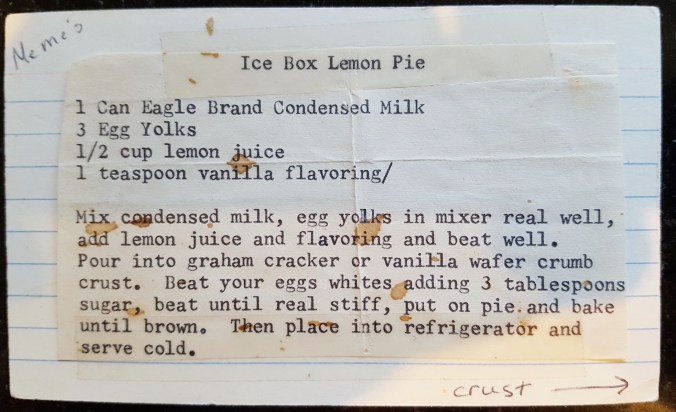 Meme's
Ice Box Lemon Pie
1 Can Eagle Brand Condensed Milk
3 Egg Yolks
1/2 cup lemon juice
1 teaspoon vanilla flavoring/
Mix condensed milk, egg yolks in mixer real well,
add lemon juice and flavoring and beat well.
Pour into graham cracker or vanilla wafer crumb
crust. Beat your eggs whites adding 3 tablespoons
sugar, beat until real stiff, put on pie and bake
until brown. Then place into refrigerator and
serve cold.
crust →